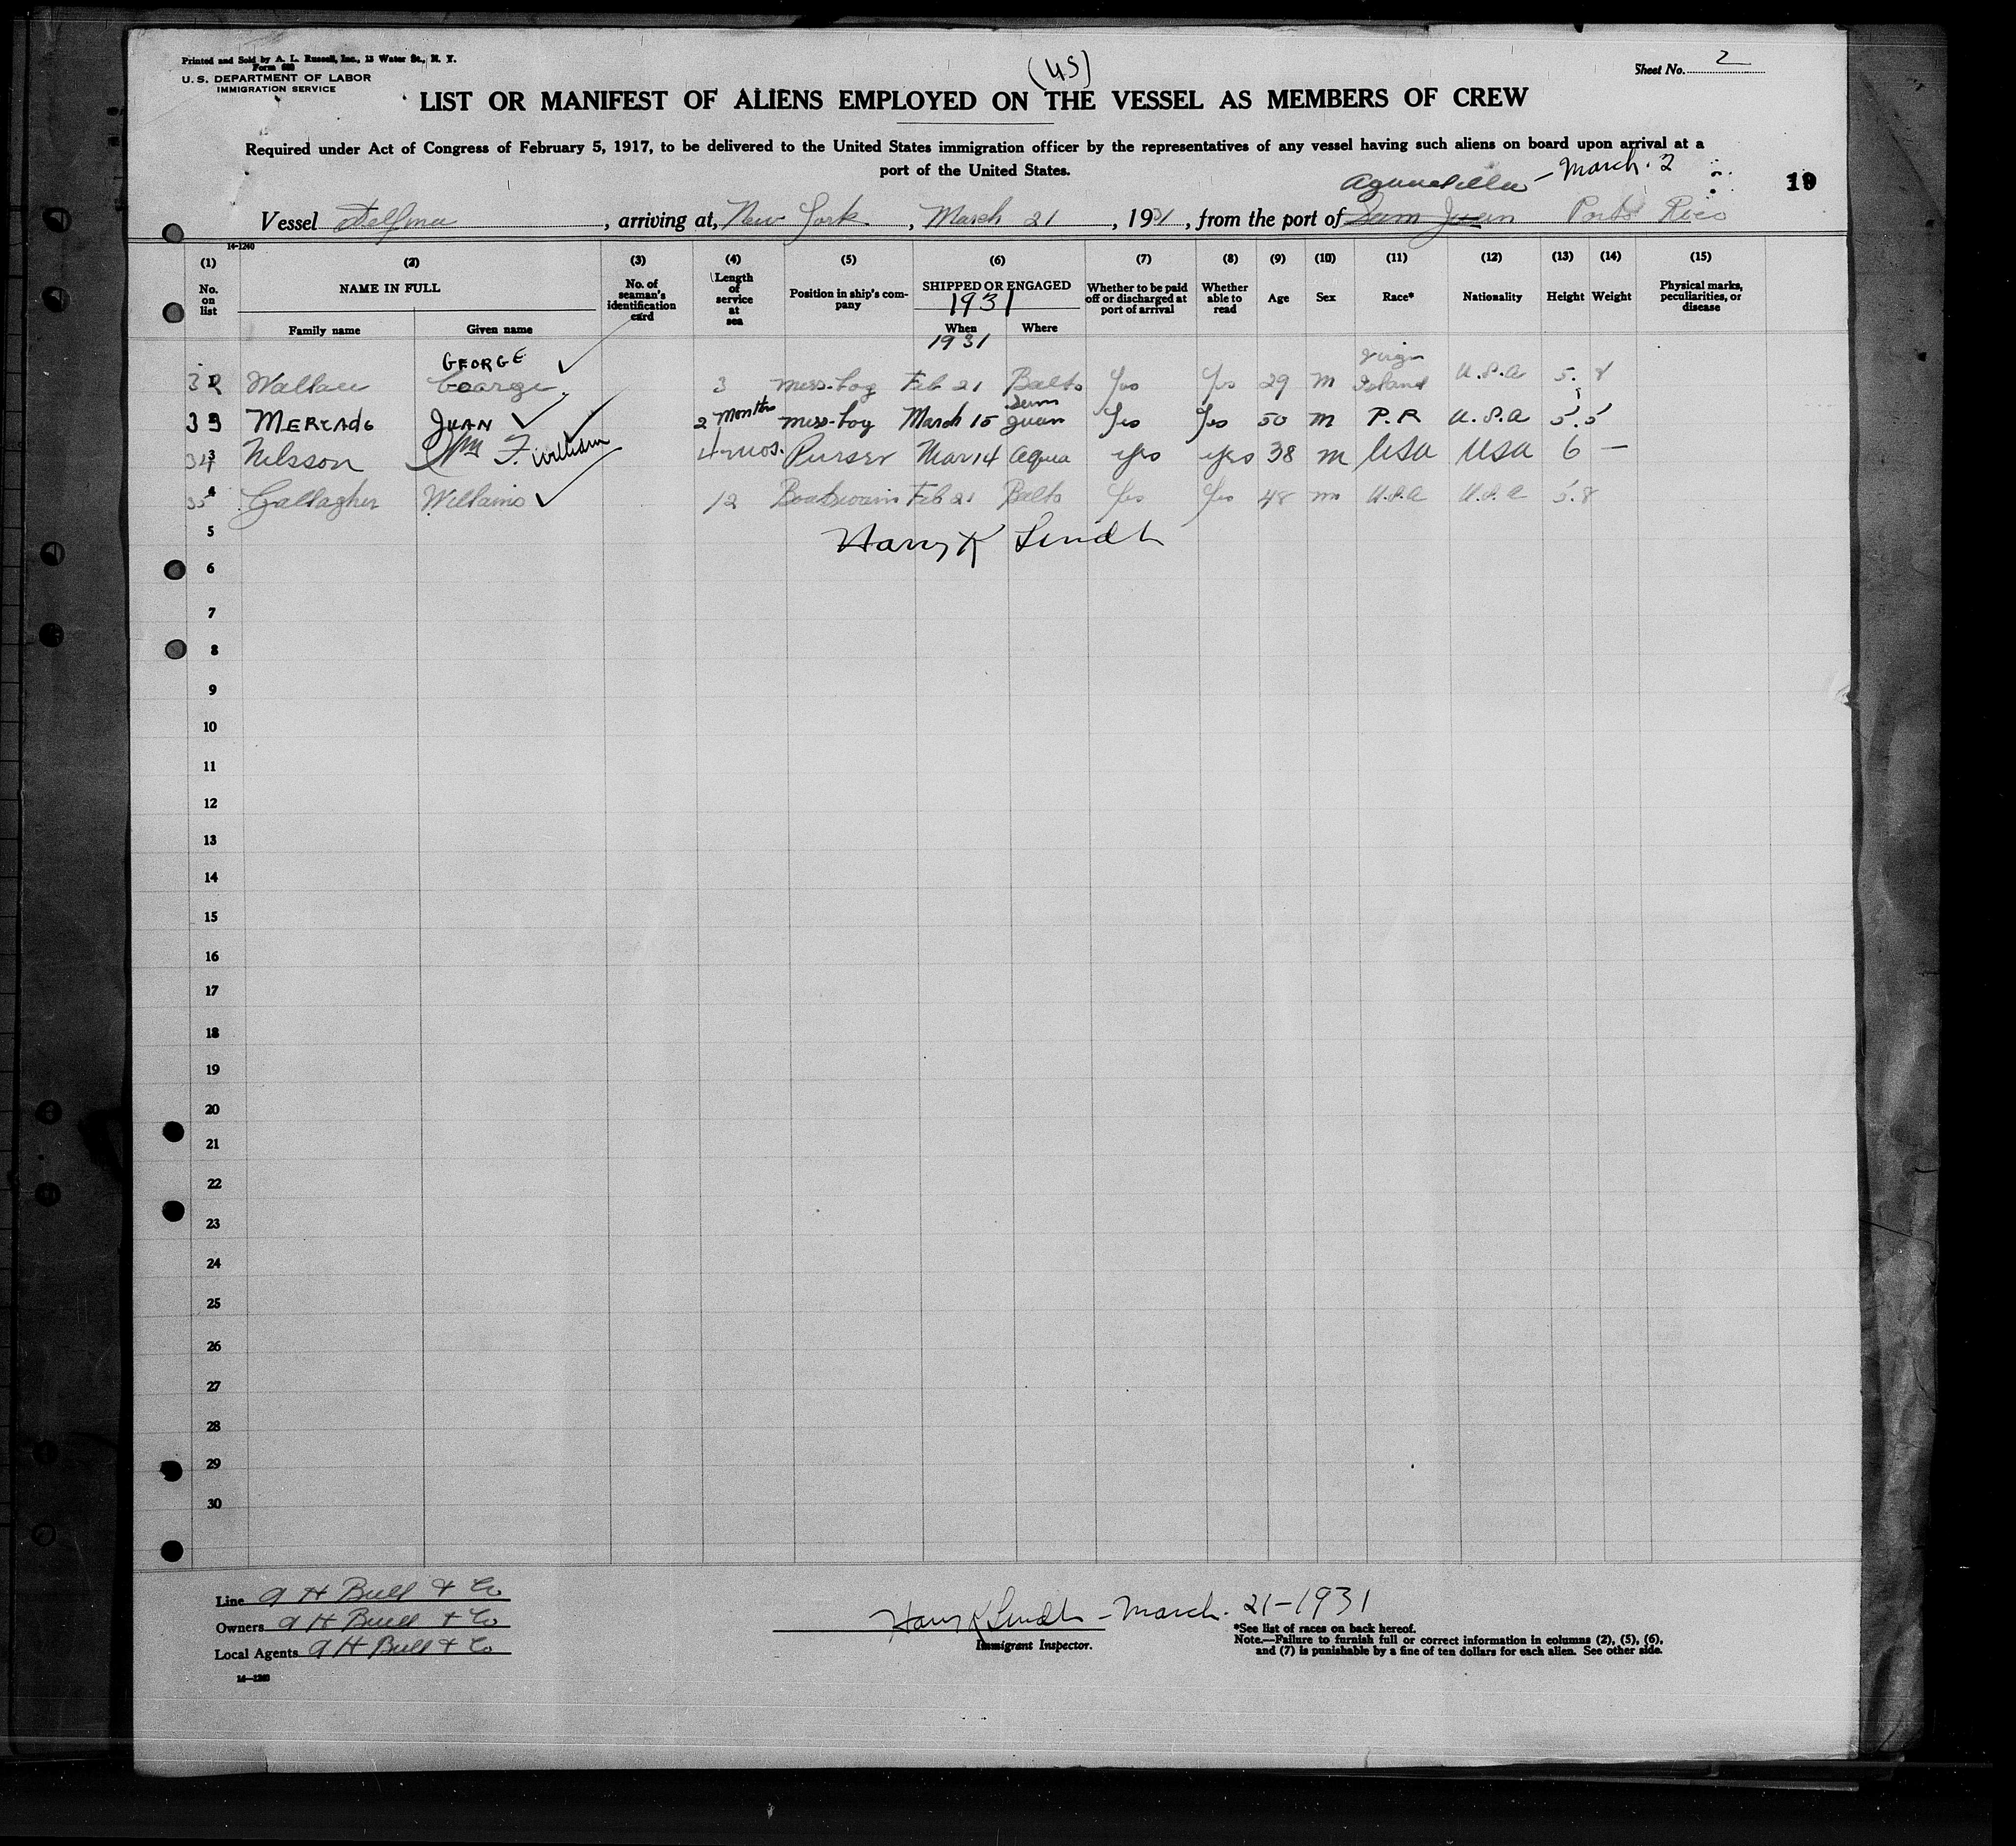 Printed and Sold by A. L. Russell, Inc., 13 Water St., N. Y.
Form 689
U. S. DEPARTMENT OF LABOR
IMMIGRATION SERVICE
(US)
Sheet No. 2
LIST OR MANIFEST OF ALIENS EMPLOYED ON THE VESSEL AS MEMBERS OF CREW
Required under Act of Congress of February 5, 1917, to be delivered to the United States immigration officer by the representatives of any vessel having such aliens on board upon arrival at a
port of the United States.
Aguadilla - March. 2
19
Vessel Delfina, arriving at, New York, March 21, 1931, from the port of San Juan Porto Rico
14-1240
(1) (2) (3) (4) (5) (6) (7) (8) (9) (10) (11) (12) (13) (14) (15)
No. on list NAME IN FULL Family name Given name No. of seaman's identification card Length of service at sea Position in ship's company SHIPPED OR ENGAGED 1931 When Where Whether to be paid off or discharged at port of arrival Whether able to read Age Sex Race* Nationality Height Weight Physical marks, peculiarities, or disease
1931
GEORGE ✓
32 Wallace George 3 Mess-boy Feb 21 Balto Yes Yes 29 m Virgin Island U.S.A 5. 8
33 MERCADO JUAN ✓ 2 months mess-boy March 15 San Juan Yes Yes 50 m P.R U.S.A 5.5
34 Nilsson Wm F. William 4 mos. Purser Mar 14 Agua yes yes 38 m USA USA 6 —
35 Gallagher Williams ✓ 12 Boatswain Feb 21 Balto Yes Yes 48 m U.S.A U.S.A 5.8
5 Harry K Lindh
6
7
8
9
10
11
12
13
14
15
16
17
18
19
20
21
22
23
24
25
26
27
28
29
30
Line A H Bull & Co
Owners A H Bull & Co
Local Agents A H Bull & Co
14-1240
Harry K Lindh - March. 21-1931
Immigrant Inspector.
*See list of races on back hereof.
Note.—Failure to furnish full or correct information in columns (2), (5), (6),
and (7) is punishable by a fine of ten dollars for each alien. See other side.